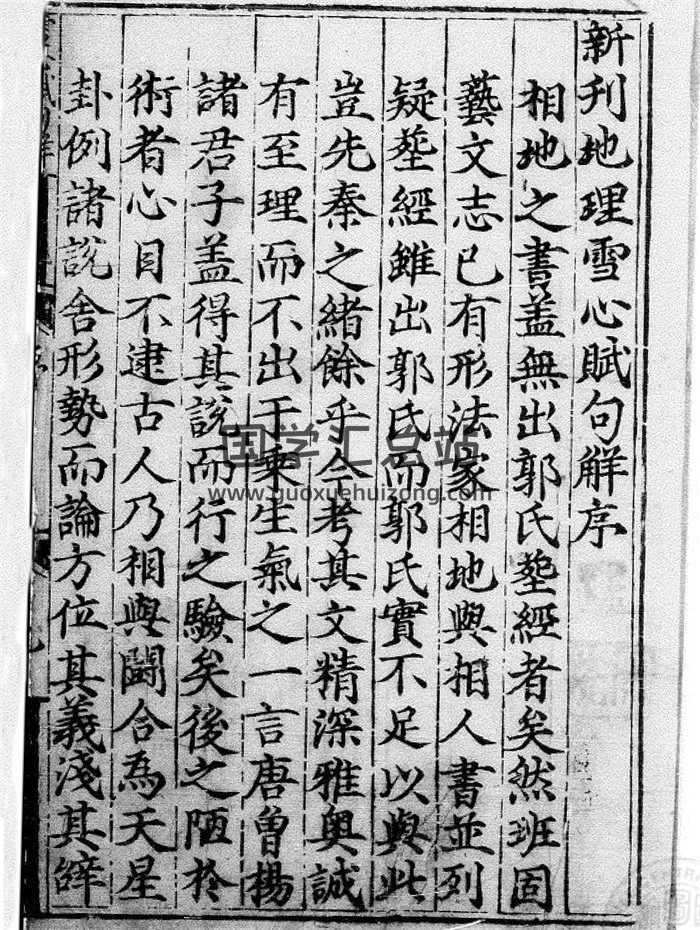 新刋地理雪心賦句解序
相地之書盖無出郭氏塟經者矣然班固
藝文志已有形法家相地與相人書並列
疑塟經雖出郭氏而郭氏實不足以與此
豈先秦之緒餘乎今考其文精深雅奥誠
有至理而不出于乗生氣之一言唐曾楊
諸君子盖得其說而行之驗矣後之陋扵
術者心目不逮古人乃相與鬪合為天星
卦例諸說舍形勢而論方位其義淺其辝
序
国学汇总站
www.guoxuehuizong.com